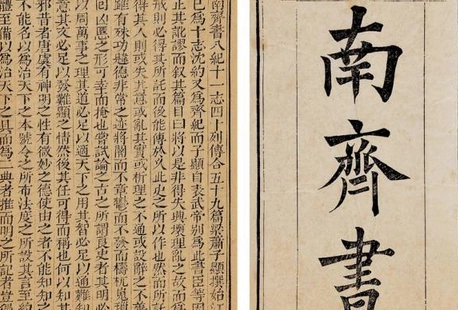 南齊書
南齊書八紀十一志四十列傳合五十九篇梁蕭子顯撰始江
已爲十志沈約又爲齊紀而子顯自表武帝別爲此書臣等因
正其訛謬而敘其篇目曰將以是非得失興壞理亂之故而爲
戒則必得其所託而後能傳於久此史之所以作也然而所
得其人則或失其意或亂其實或析理之不通或設辭之不
雖有殊功韙德非常之迹將闇而不章鬱而不發而檮杌嵬
回凶慝之形可幸而掩也嘗試論之古之所謂良史者其明必
以周萬事之理其道必足以適天下之用其智必足以通難知
意其文必足以發難顯之情然後其任可得而稱也何以知其
邪昔者唐虞有神明之性有微妙之德使由之者不能知知之
不能名以爲治天下之本號令之所布法度之所設其言至約
體至備以爲治天下之具而爲二典者推而明之所記者豈